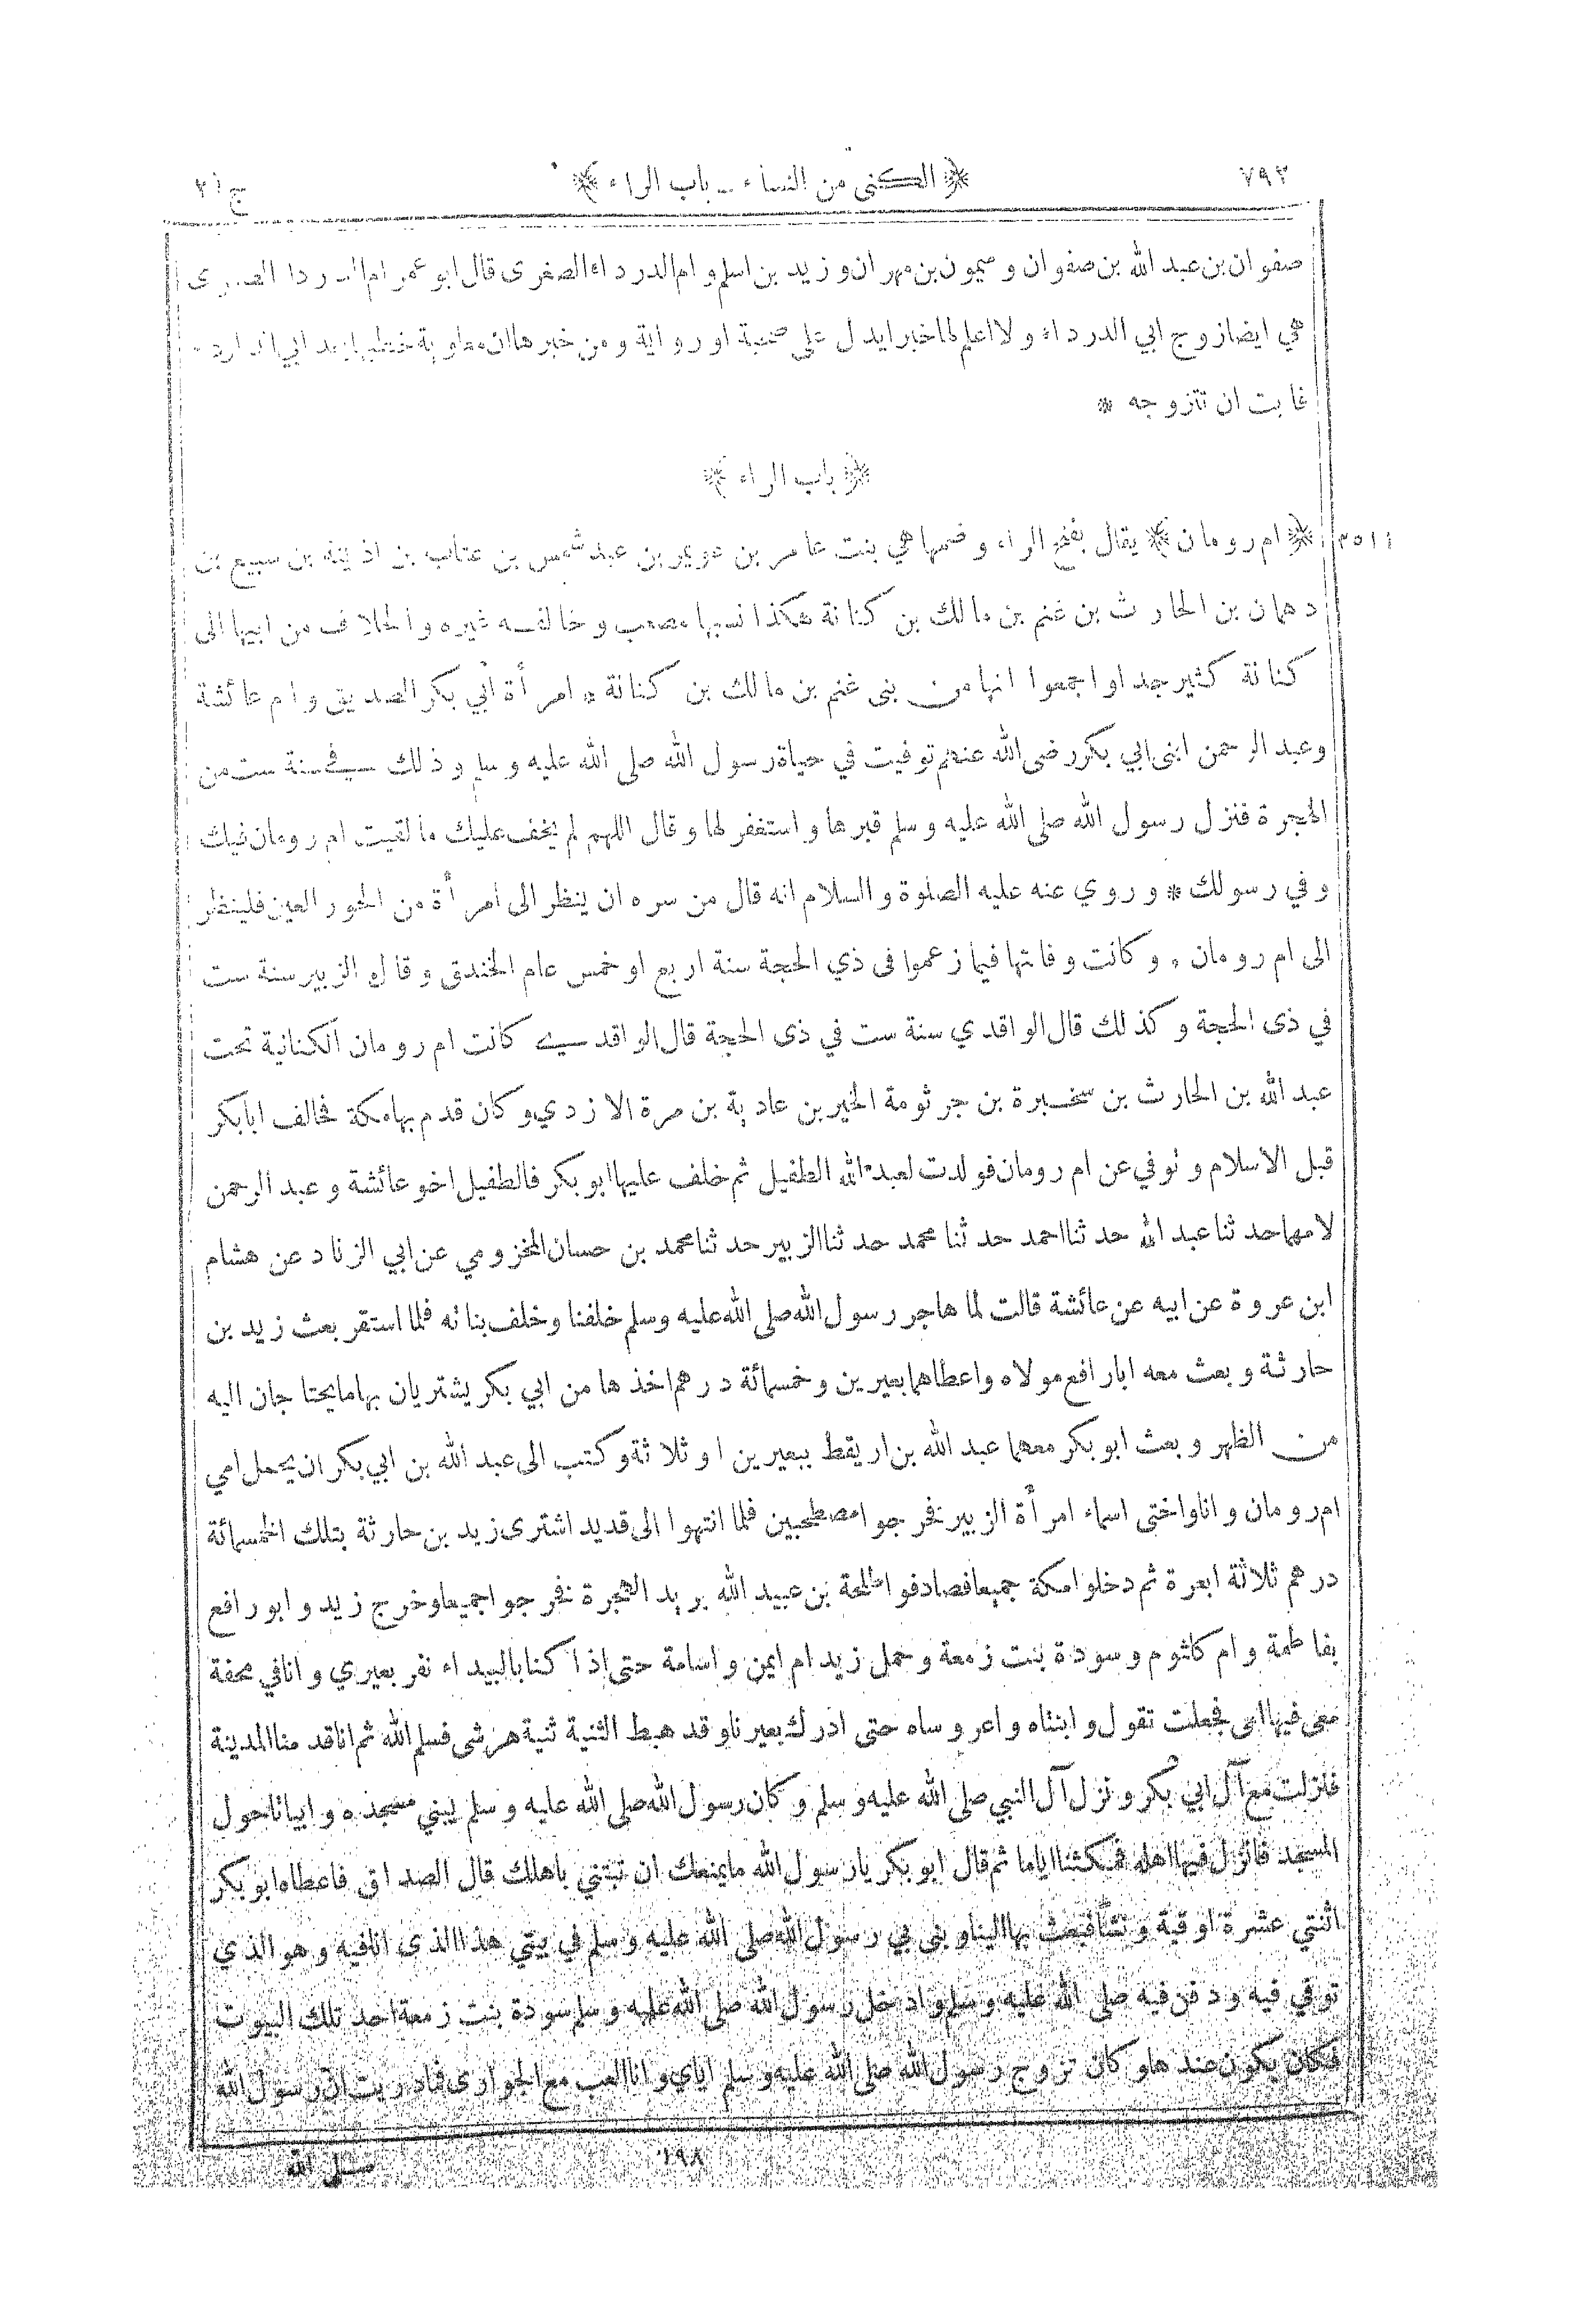 ٧٩٢ ﴿ الكنى من النساء — باب الراء ﴾ ج ٢
صفوان بن عبد الله بن صفوان و ميمون بن مهران و زيد بن اسلم و ام الدرداء الصغرى قال ابو عمر ام الدرداء الصغرى
هي ايضا زوج ابي الدرداء و لا اعلم لها خبرا يدل على صحبة او رواية و من خبرها ان معاوية خطبها بعد ابي الدرداء
فابت ان تتزوجه *
﴿ باب الراء ﴾
٣٥١١ ﴿ ام رومان ﴾ يقال بفتح الراء و ضمها هي بنت عامر بن عويمر بن عبد شمس بن عتاب بن اذينة بن سبيع بن
دهمان بن الحارث بن غنم بن مالك بن كنانة هكذا نسبها مصعب و خالفه غيره و الخلاف من ابيها الى
كنانة كثير جدا و اجمعوا انها من بنى غنم بن مالك بن كنانة * امرأة أبي بكر الصديق و ام عائشة
و عبد الرحمن ابنى ابي بكر رضى الله عنهم توفيت في حياة رسول الله صلى الله عليه و سلم و ذلك في سنة ست من
الهجرة فنزل رسول الله صلى الله عليه و سلم قبرها و استغفر لها و قال اللهم لم يخف عليك ما لقيت ام رومان فيك
و في رسولك * و روي عنه عليه الصلوة و السلام انه قال من سره ان ينظر الى امرأة من الحور العين فلينظر
الى ام رومان * و كانت وفاتها فيما زعموا فى ذي الحجة سنة اربع او خمس عام الخندق و قال الزبير سنة ست
في ذى الحجة و كذلك قال الواقدي سنة ست في ذى الحجة قال الواقدي كانت ام رومان الكنانية تحت
عبد الله بن الحارث بن سخبرة بن جرثومة الخير بن عادية بن مرة الازدي و كان قدم بها مكة فحالف ابا بكر
قبل الاسلام و توفي عن ام رومان فولدت لعبد الله الطفيل ثم خلف عليها ابو بكر فالطفيل اخو عائشة و عبد الرحمن
لامها حدثنا عبد الله حدثنا احمد حدثنا محمد حدثنا الزبير حدثنا محمد بن حسان المخزومي عن ابي الزناد عن هشام
ابن عروة عن ابيه عن عائشة قالت لما هاجر رسول الله صلى الله عليه وسلم خلفنا و خلف بناته فلما استقر بعث زيد بن
حارثة و بعث معه ابا رافع مولاه و اعطاهما بعيرين و خمسمائة درهم اخذها من ابي بكر يشتريان بها ما يحتاجان اليه
من الظهر و بعث ابو بكر معهما عبد الله بن اريقط ببعيرين او ثلاثة و كتب الى عبد الله بن ابي بكر ان يحمل امي
ام رومان و انا و اختى اسماء امرأة الزبير فخرجوا مصطحبين فلما انتهوا الى قديد اشترى زيد بن حارثة بتلك الخمسمائة
درهم ثلاثة ابعرة ثم دخلوا مكة جميعا فصادفوا طلحة بن عبيد الله يريد الهجرة فخرجوا جميعا و خرج زيد و ابو رافع
بفاطمة و ام كلثوم و سودة بنت زمعة و حمل زيد ام ايمن و اسامة حتى اذا كنا بالبيداء نفر بعيري و انا في محفة
معى فيها امى فجعلت تقول وابنتاه واعروساه حتى ادرك بعيرنا و قد هبط الثنية ثنية هرشى فسلم الله ثم انا قدمنا المدينة
فنزلت مع آل ابي بكر و نزل آل النبي صلى الله عليه و سلم و كان رسول الله صلى الله عليه و سلم يبني مسجده و ابياتا حول
المسجد فانزل فيها اهله فمكثنا اياما ثم قال ابو بكر يا رسول الله ما يمنعك ان تبتني باهلك قال الصداق فاعطاه ابو بكر
اثنتي عشرة اوقية و نشا فبعث بها الينا و بنى بي رسول الله صلى الله عليه و سلم في بيتي هذا الذى انا فيه و هو الذي
توفي فيه و دفن فيه صلى الله عليه و سلم و ادخل رسول الله صلى الله عليه و سلم سودة بنت زمعة احد تلك البيوت
فكان يكون عندها و كان تزوج رسول الله صلى الله عليه و سلم اياي و انا العب مع الجوارى فما دريت ان رسول الله
١٩٨ صلى الله